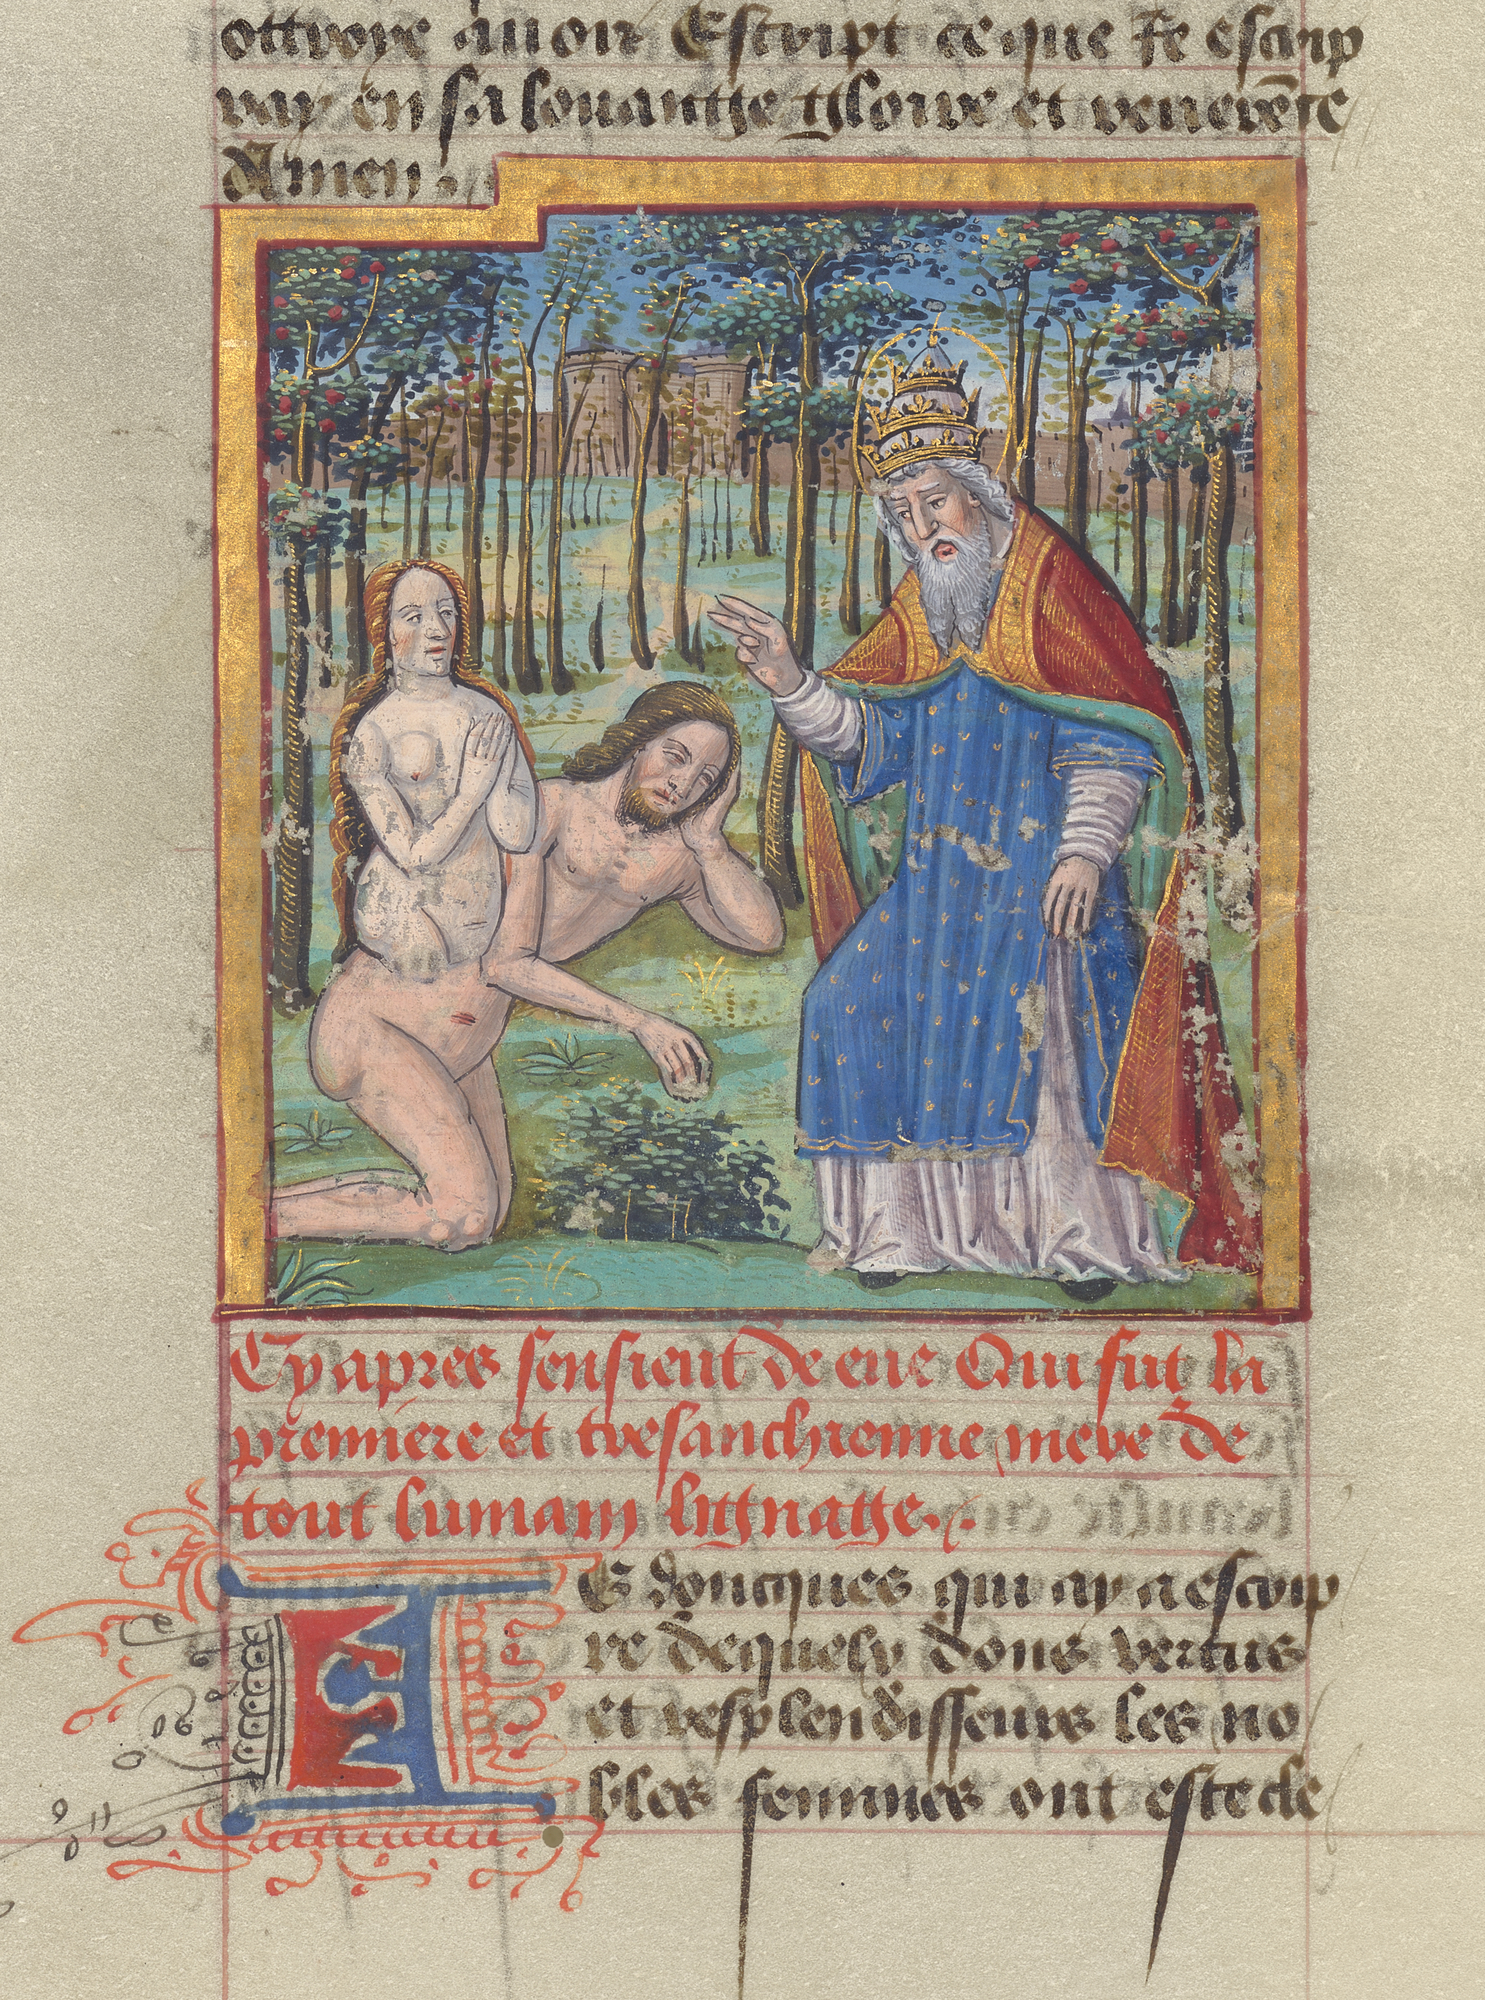 ottroye avoir Escript ce que Je escrip
ray en sa louantge tgloire et reverēce
Amen.
Cy apres sensieut de eve Qui fut la
premiere et tresanchienne mere de
tout lumain lignatge.
IE doncques qui ay a escrip
re de quelz dons vertus
et resplendisseurs les no
bles femmes ont este de